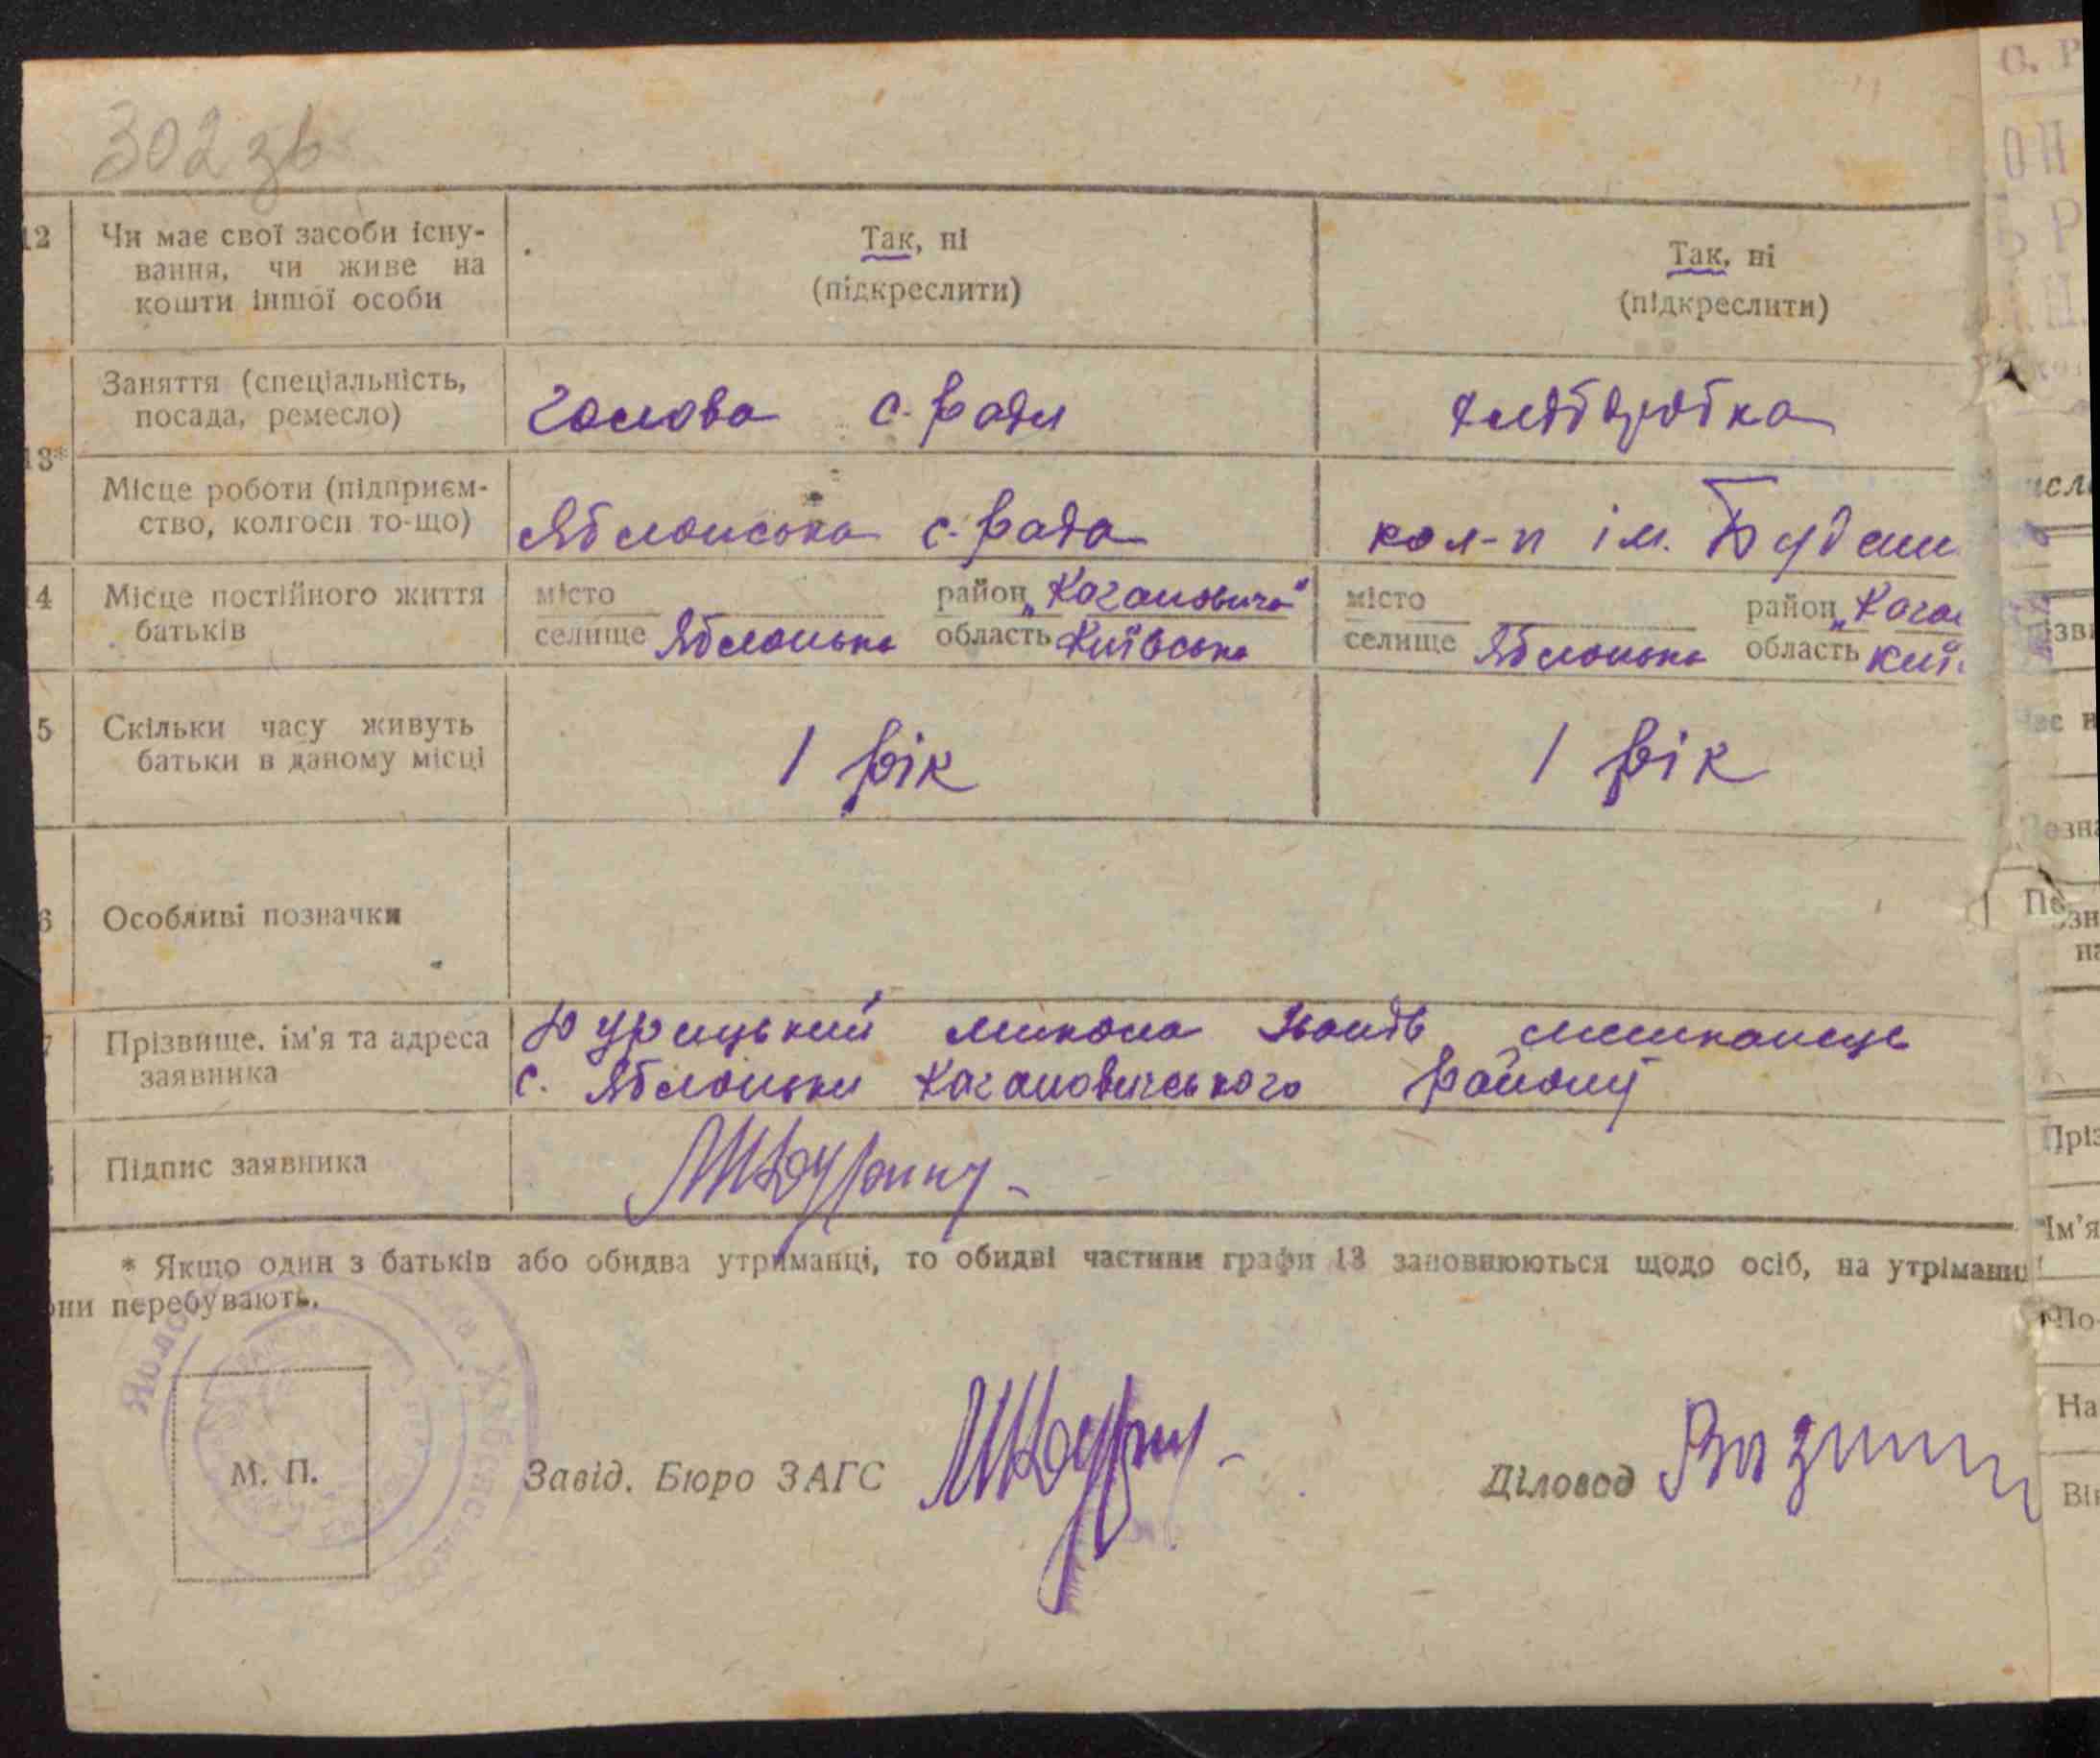 302 зв
12 Чи має свої засоби існу-
вання, чи живе на
кошти іншої особи
Так, ні
(підкреслити)
Так, ні
(підкреслити)
13*
Заняття (спеціальність,
посада, ремесло)
Голова с. Ради
Місце роботи (підприєм-
ство, колгосп то-що)
Яблонська с. Рада
кол-п ім.
4 Місце постійного життя
батьків
місто район „Кагановича"
селище Яблонька область Київська
місто район „Кага
селище Яблонька область Киї
5 Скільки часу живуть
батьки в даному місці
1 Рік
1 Рік
6 Особливі позначки
7 Прізвище, ім'я та адреса
заявника
микола мешканець
с. Яблоньки Кагановичського Району
Підпис заявника
* Якщо один з батьків або обидва утриманці, то обидві частини графи 13 заповнюються щодо осіб, на утриманні
они перебувають.
М. П.
Завід. Бюро ЗАГС
Діловод
Ім'я
По-
На